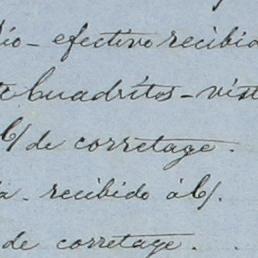 io - efectivo recibid
Cuadritos - vist
b/ de corretage.
a. recibido á b/.
de corretage.